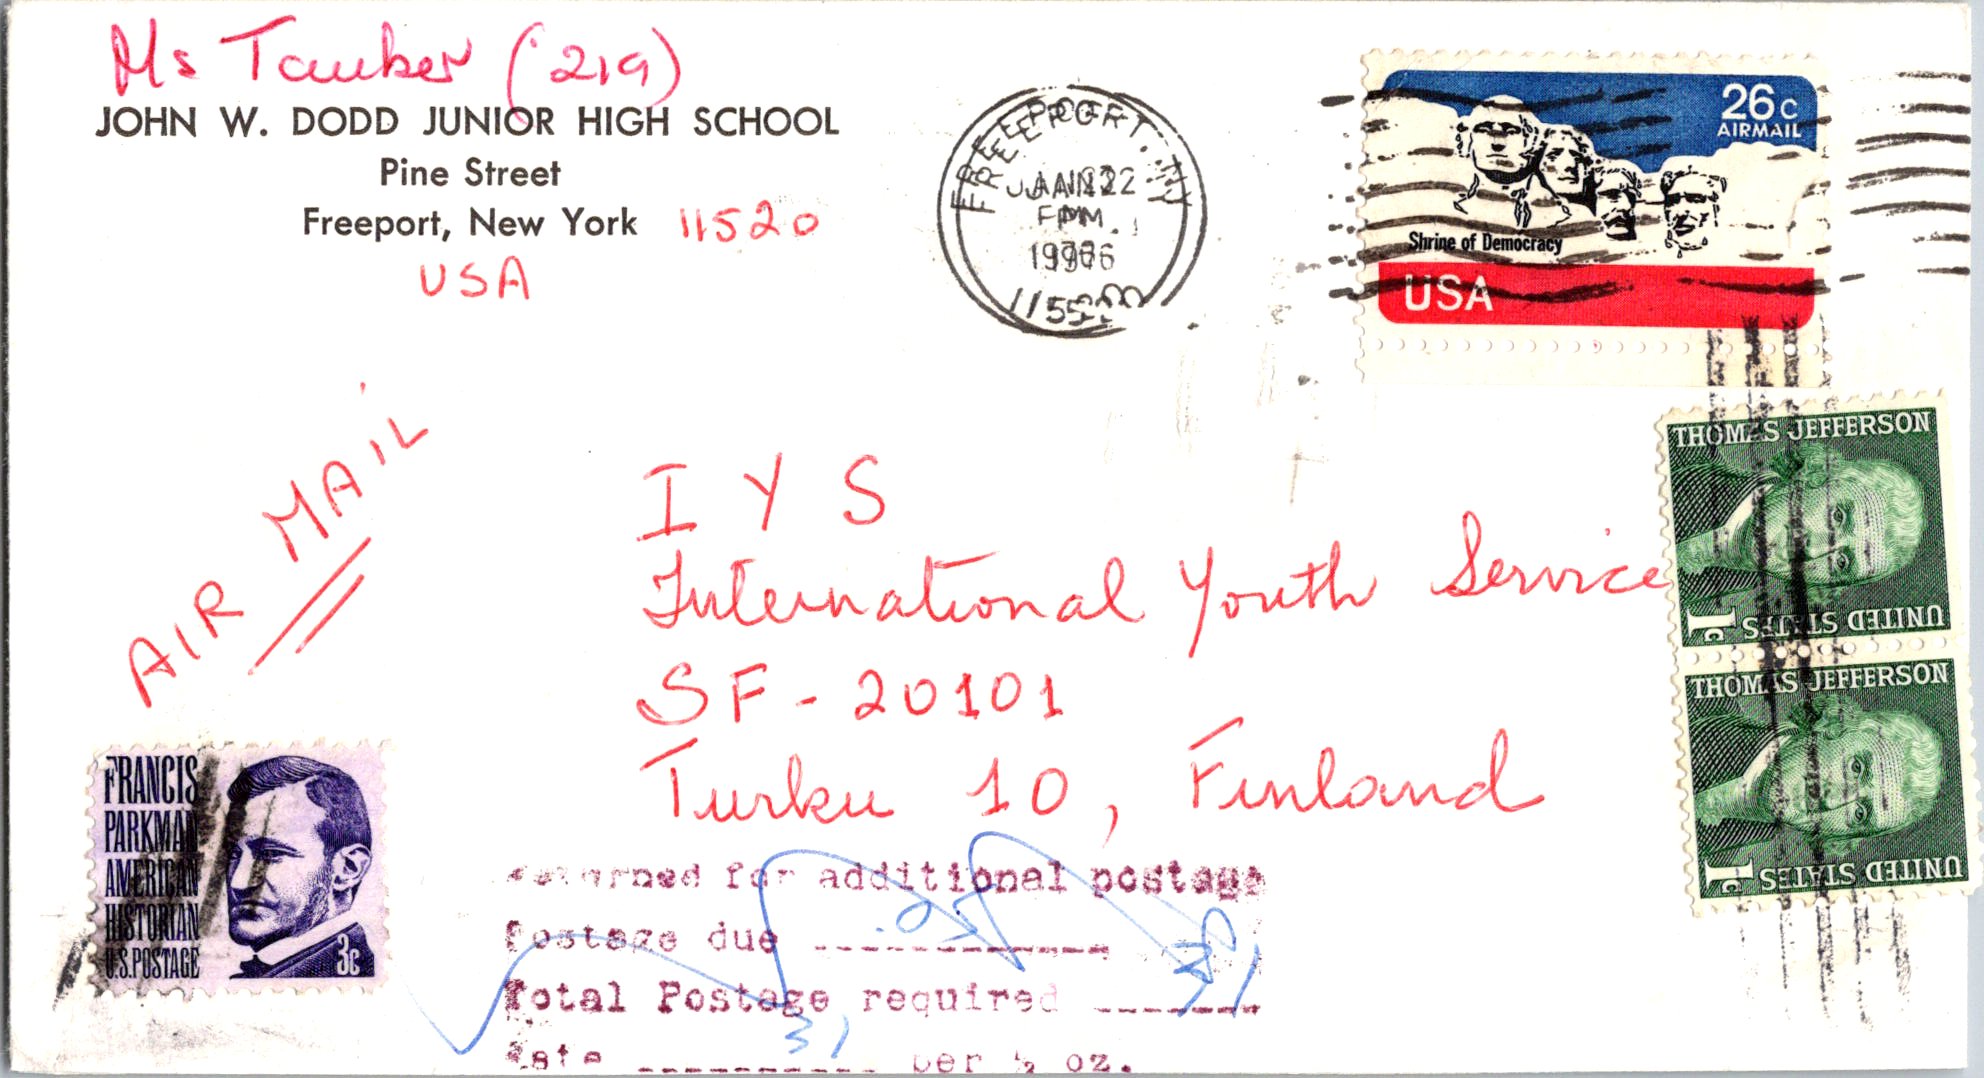 Ms Tauber (219)
JOHN W. DODD JUNIOR HIGH SCHOOL
Pine Street
Freeport, New York 11520
USA
FREEPORT, NY
JAN 22
PM
1976
26c
AIRMAIL
Shrine of Democracy
USA
AIR MAIL
I Y S
International Youth Service
SF-20101
Turku 10, Finland
THOMAS JEFFERSON
1c UNITED STATES
THOMAS JEFFERSON
1c UNITED STATES
FRANCIS
PARKMAN
AMERICAN
HISTORIAN
U.S. POSTAGE
3c
Returned for additional postage
Postage due
Total Postage required 31
Rate 31 per ½ oz.